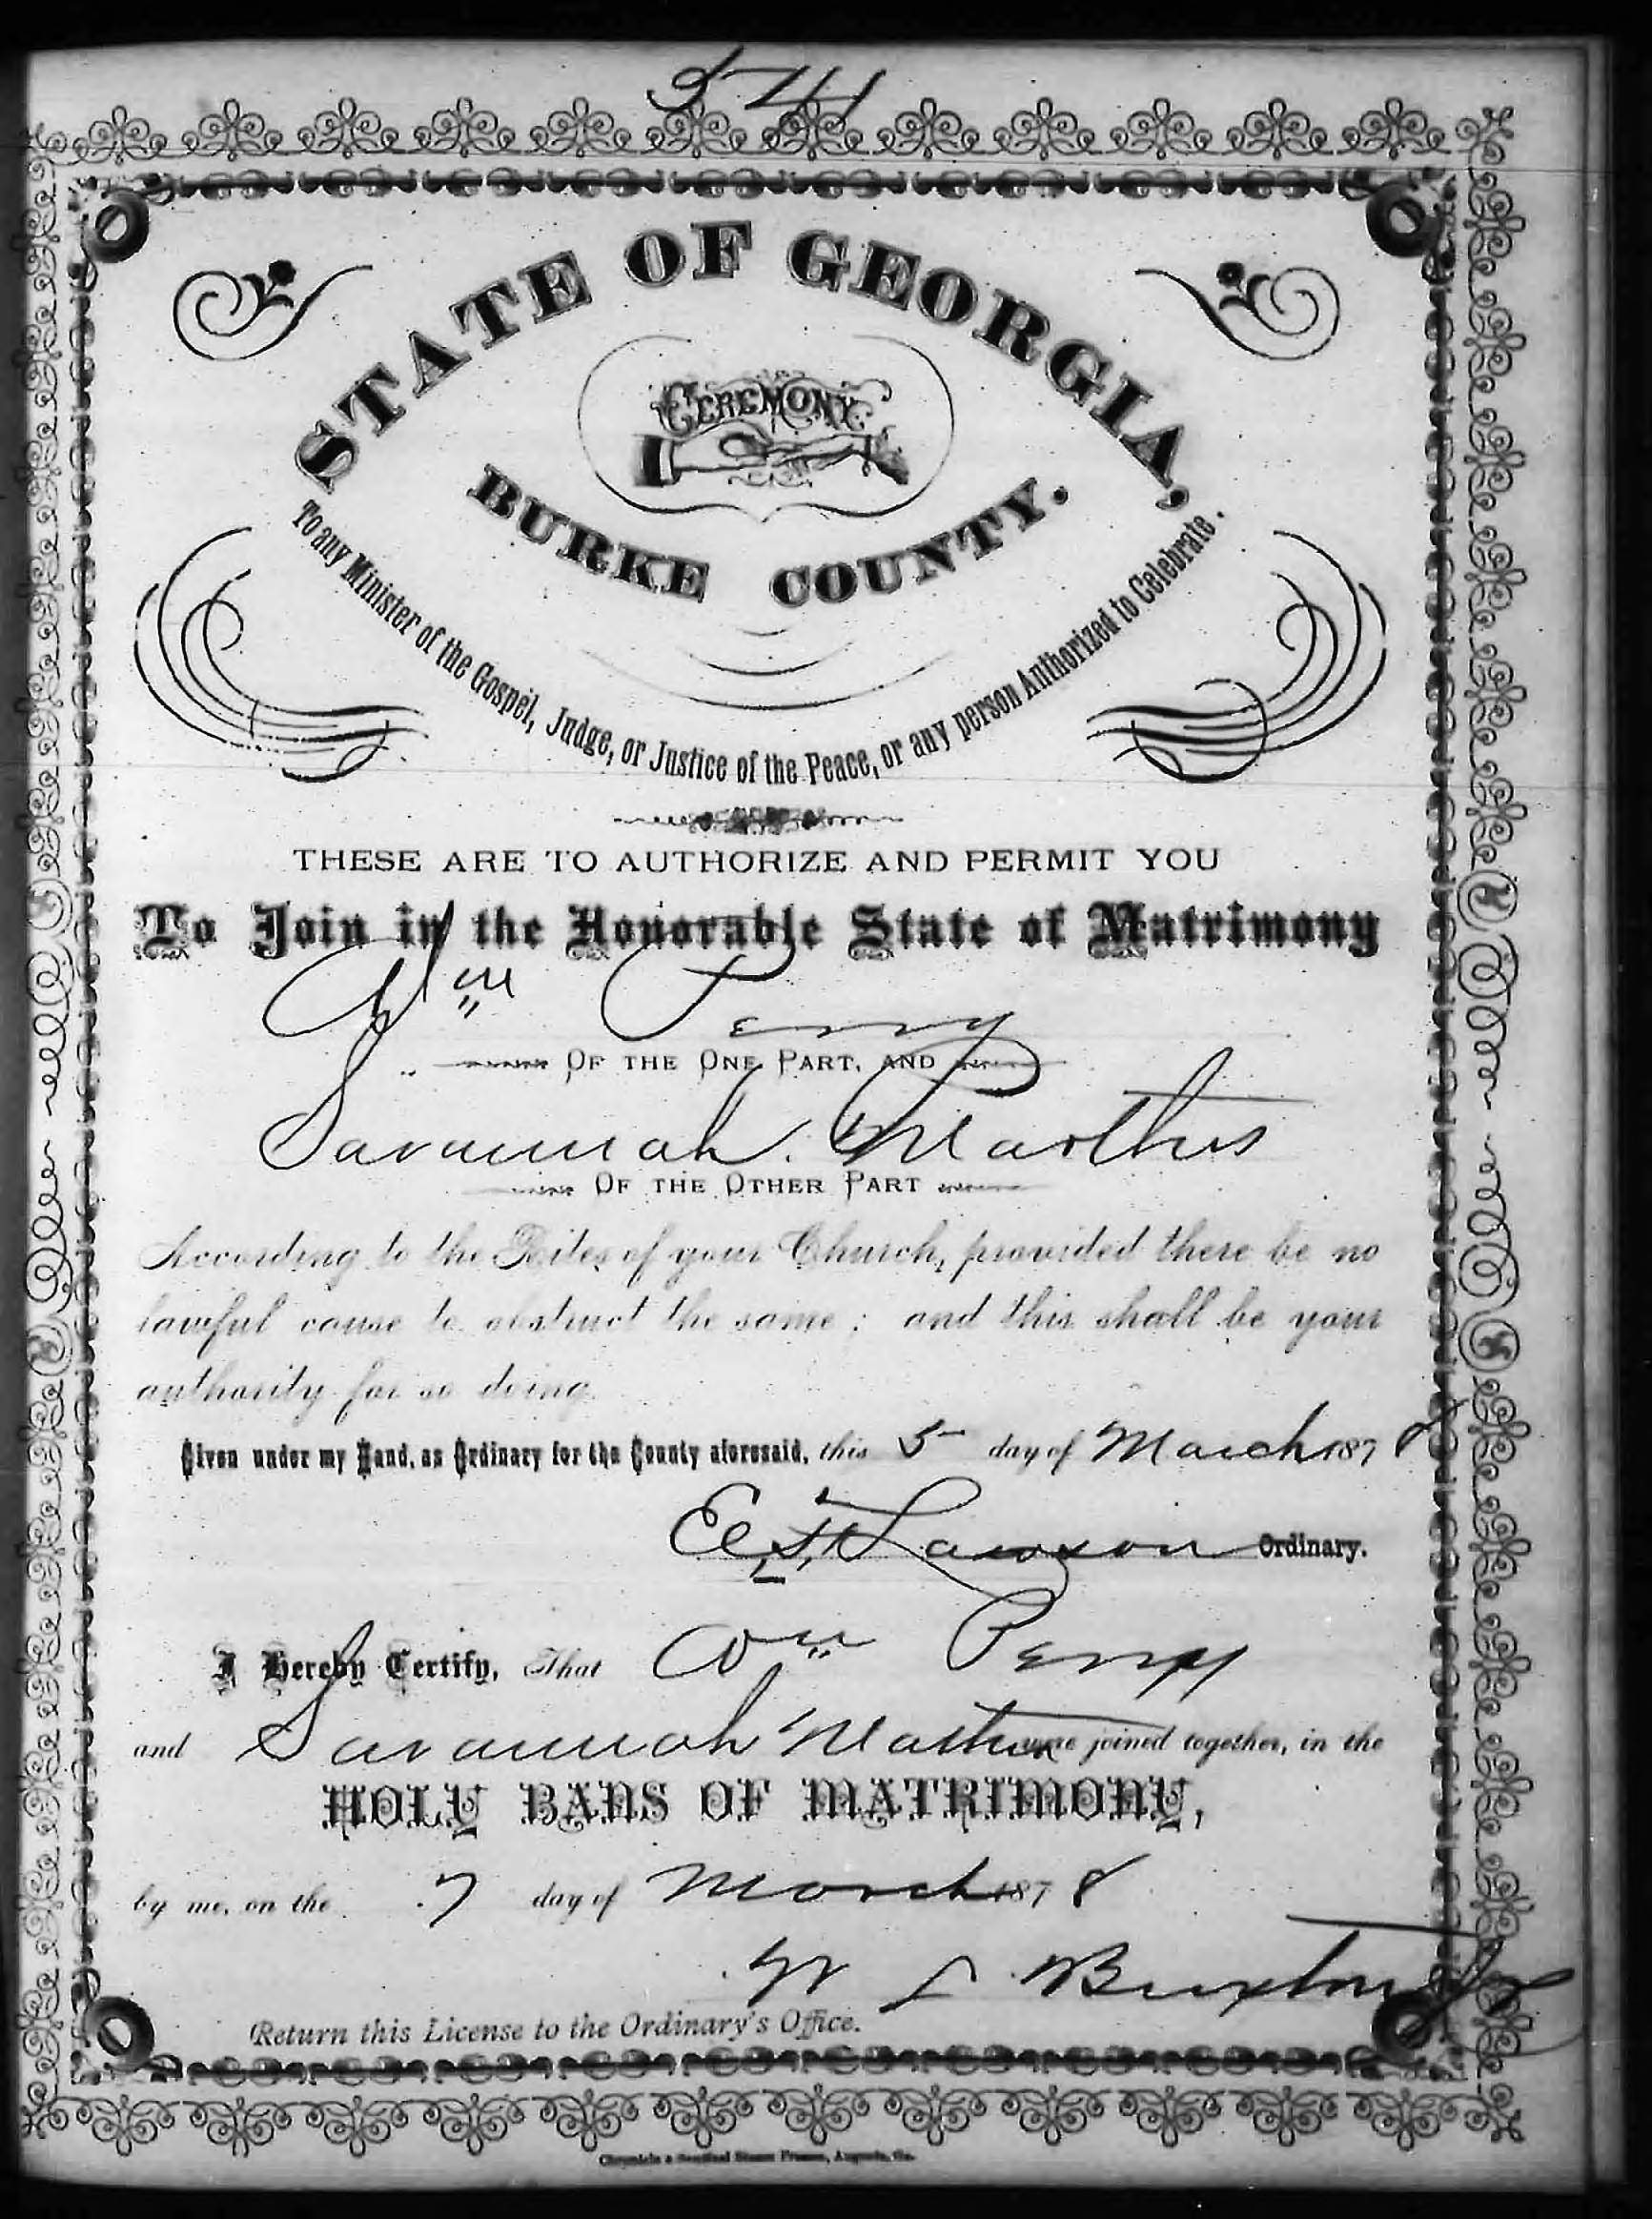 541
STATE OF GEORGIA,
CEREMONY
BURKE COUNTY.
To any Minister of the Gospel, Judge, or Justice of the Peace, or any person Authorized to Celebrate.
THESE ARE TO AUTHORIZE AND PERMIT YOU
To Join in the Honorable State of Matrimony
Wm Perry
OF THE ONE PART, AND
Savannah
OF THE OTHER PART
According to the Rites of your Church, provided there be no
lawful cause to obstruct the same; and this shall be your
authority for so doing.
Given under my Hand, as Ordinary for the County aforesaid, this 5 day of March 1878
Lawson Ordinary.
I Hereby Certify, That Wm Perry
and Savannah were joined together, in the
HOLY BANS OF MATRIMONY,
by me, on the 7 day of March 1878
Return this License to the Ordinary's Office.
Chronicle & Sentinel Steam Presses, Augusta, Ga.